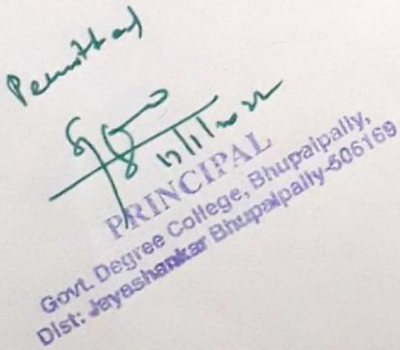 Permitted
17/1/2022
PRINCIPAL
Govt. Degree College, Bhupalpally,
Dist: Jayashankar Bhupalpally-506169